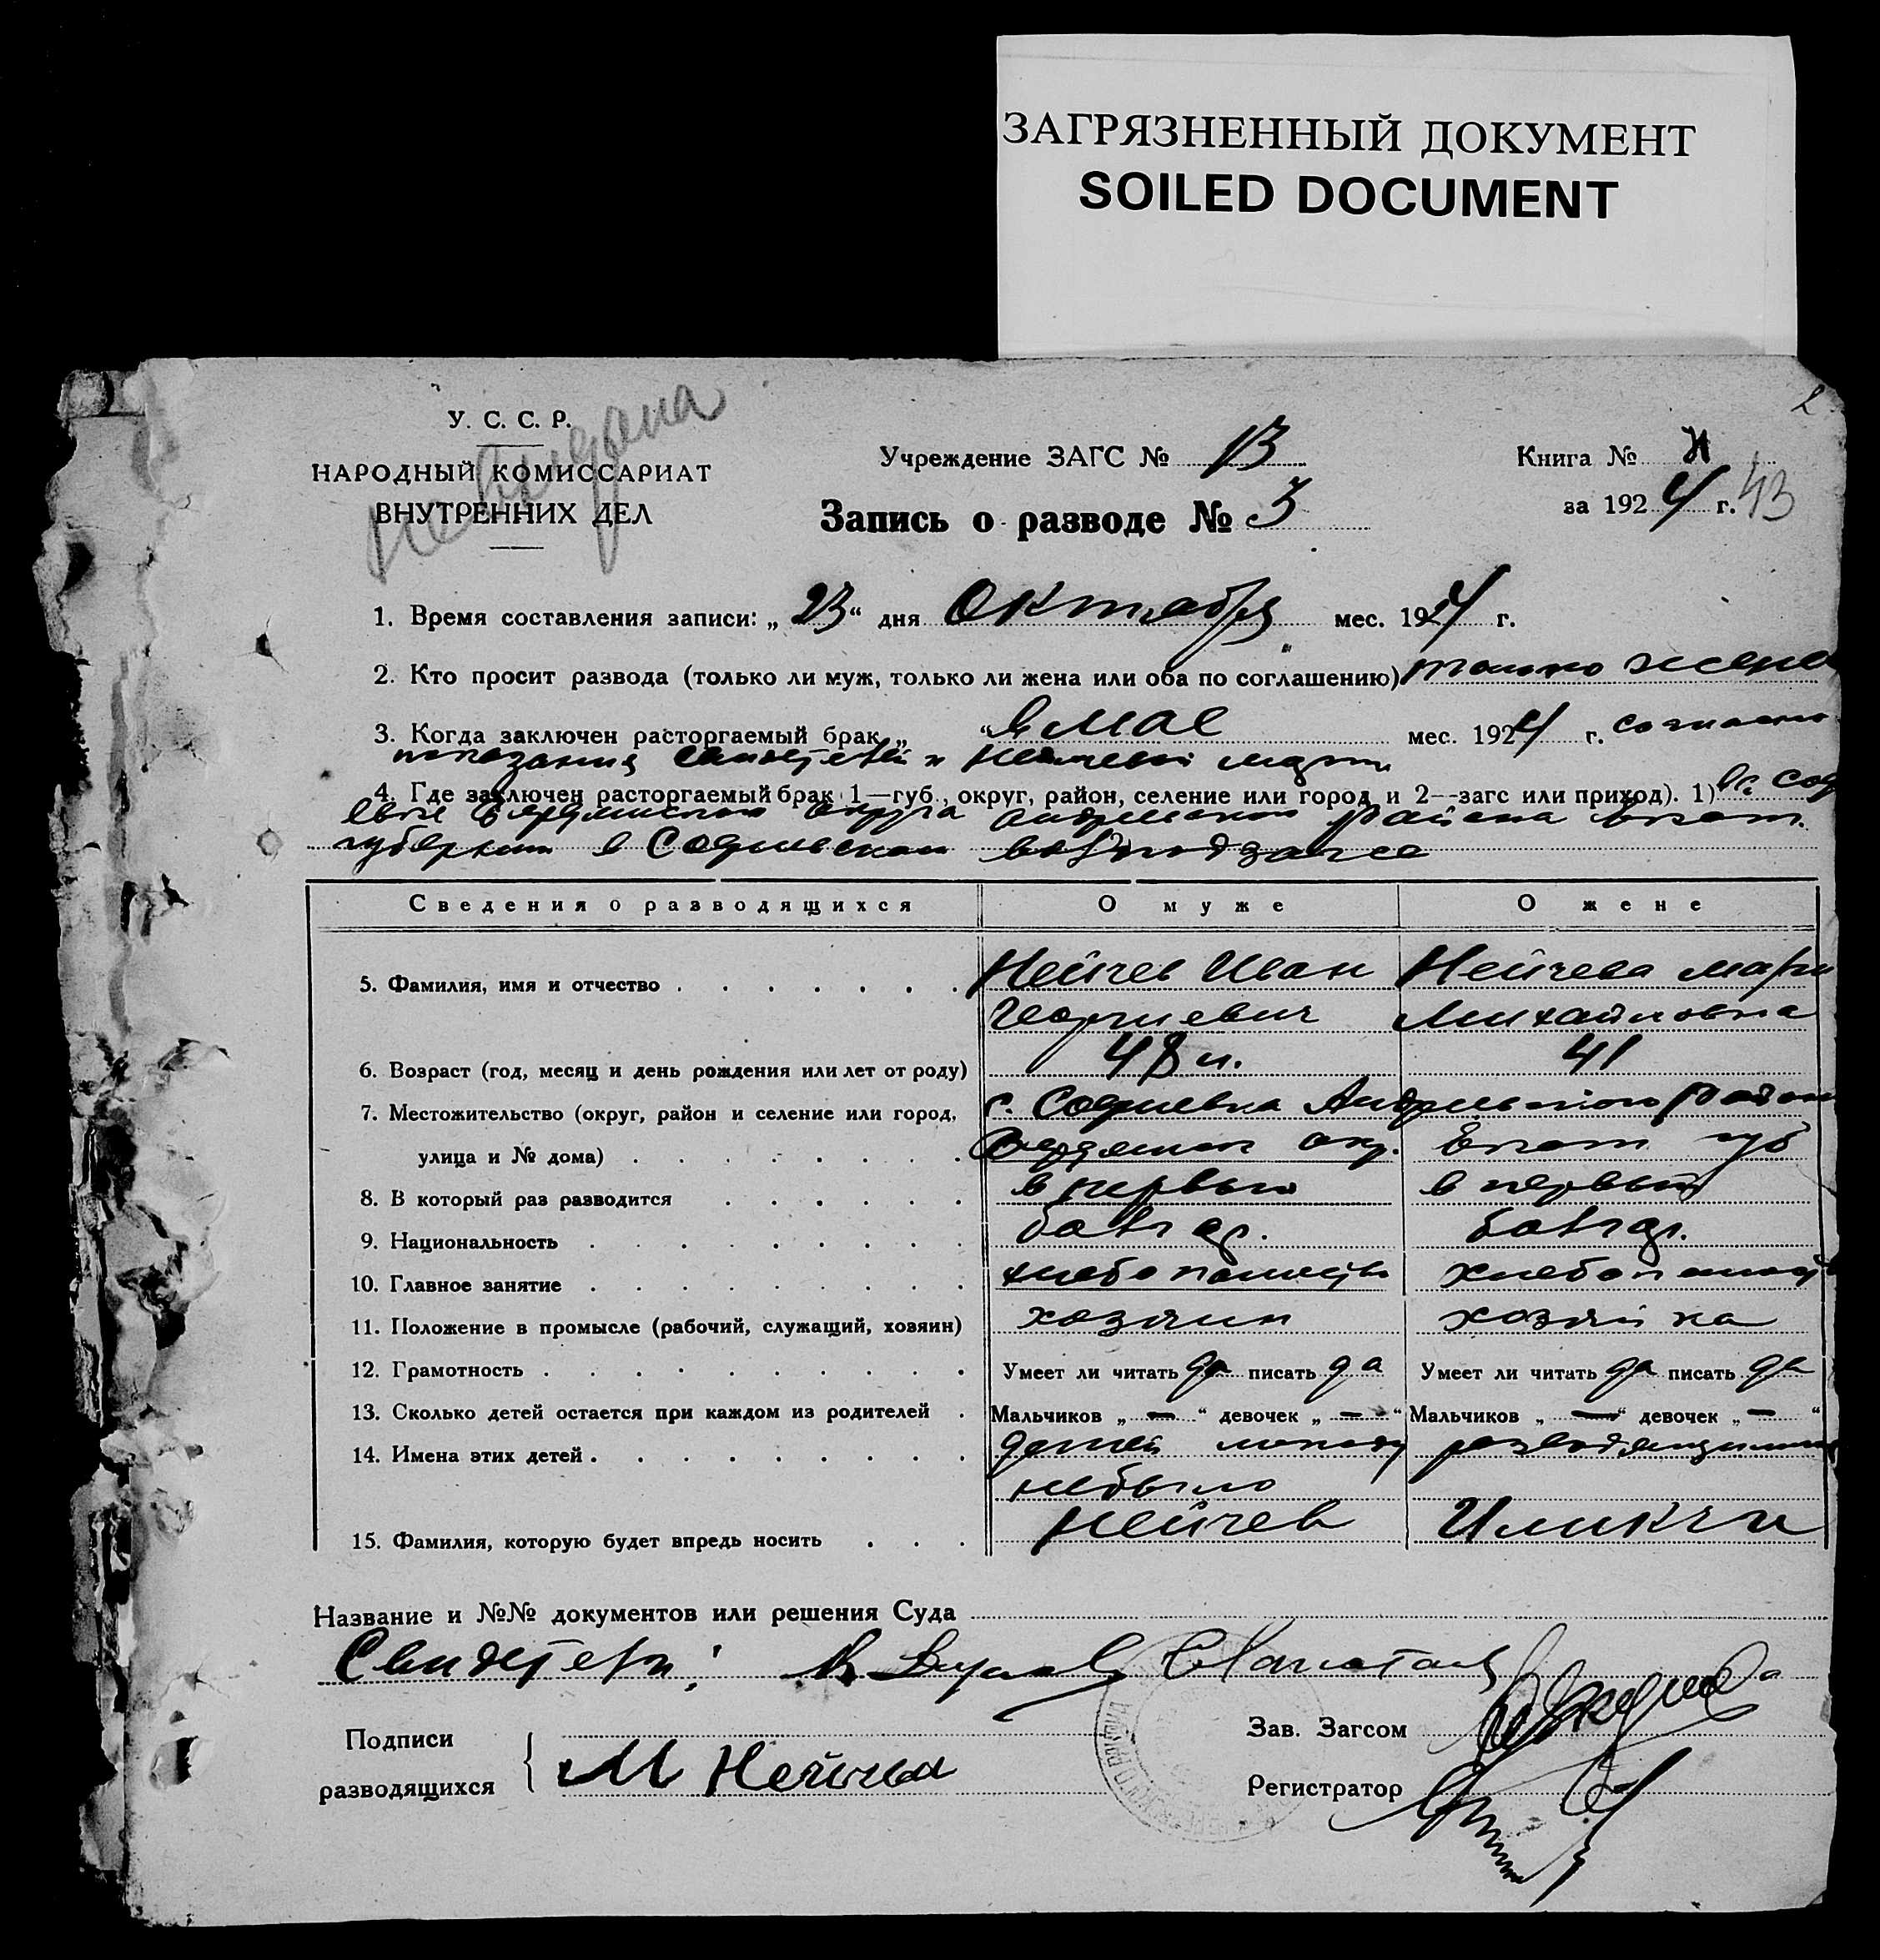 ЗАГРЯЗНЕННЫЙ ДОКУМЕНТ
SOILED DOCUMENT
2
У. С. С. Р.
НАРОДНЫЙ КОМИССАРИАТ
ВНУТРЕННИХ ДЕЛ
Учреждение ЗАГС № 13
Запись о разводе № 3
Книга №
за 1924 г. 43
1. Время составления записи: „ 23 “ дня Октября мес. 1924 г.
2. Кто просит развода (только ли муж, только ли жена или оба по соглашению) только жена
3. Когда заключен расторгаемый брак „ “ в мае мес. 1924 г. согласно
показания свидетелей и
4. Где заключен расторгаемый брак 1—губ., округ, район, селение или город и 2—загс или приход). 1) в с. Соф
евке Бердянского округа Андреевского района Екат.
губернии в Софиевском загсе
Сведения о разводящихся О муже О жене
5. Фамилия, имя и отчество Нейчев Иван Нейчева Мари
Георгиевич Михайловна
6. Возраст (год, месяц и день рождения или лет от роду) 48 л. 41
7. Местожительство (округ, район и селение или город, с. Софиевка Андреевского район
улица и № дома) Бердянск окр. Екат губ
8. В который раз разводится в первый в первый
9. Национальность болгар. болгар.
10. Главное занятие хлебопашество хлебопашест
11. Положение в промысле (рабочий, служащий, хозяин) хозяин хозяйка
12. Грамотность Умеет ли читать да писать да Умеет ли читать да писать да
13. Сколько детей остается при каждом из родителей Мальчиков „ — “ девочек „ — “ Мальчиков „ — “ девочек „ — “
14. Имена этих детей детей между разводящимися
небыло
15. Фамилия, которую будет впредь носить Нейчев Иликчи
Название и №№ документов или решения Суда
Свидетели:
Подписи
разводящихся
М Нейчева
Зав. Загсом
Регистратор